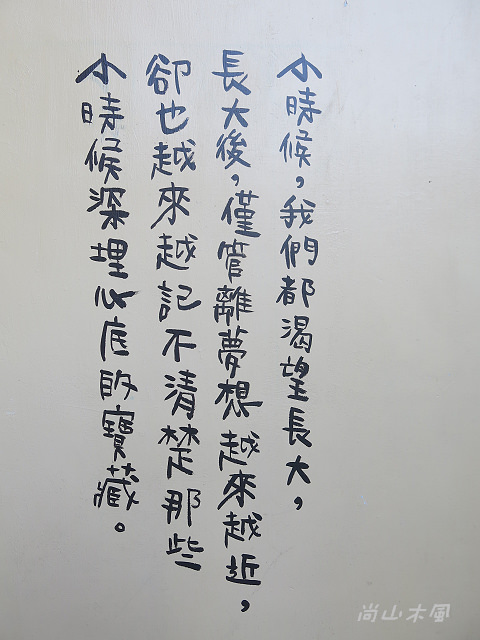 小時候，我們都渴望長大，
長大後，僅管離夢想越來越近，
卻也越來越記不清楚那些
小時候深埋心底的寶藏。
尚山木風